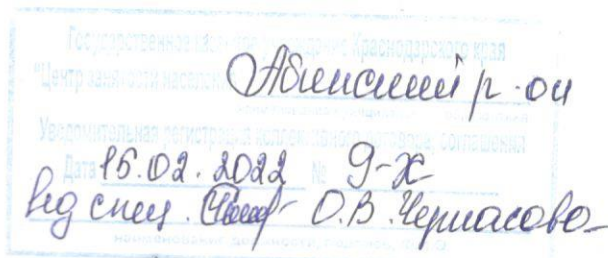 Государственное казенное учреждение Краснодарского края
"Центр занятости населения
Абинский р-он
Уведомительная регистрация коллективного договора, соглашения
Дата 15.02.2022 № 9-Х
вед спец. О.В. Черкасова